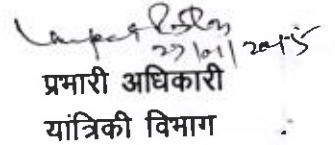 27/01/2015
प्रभारी अधिकारी
यांत्रिकी विभाग